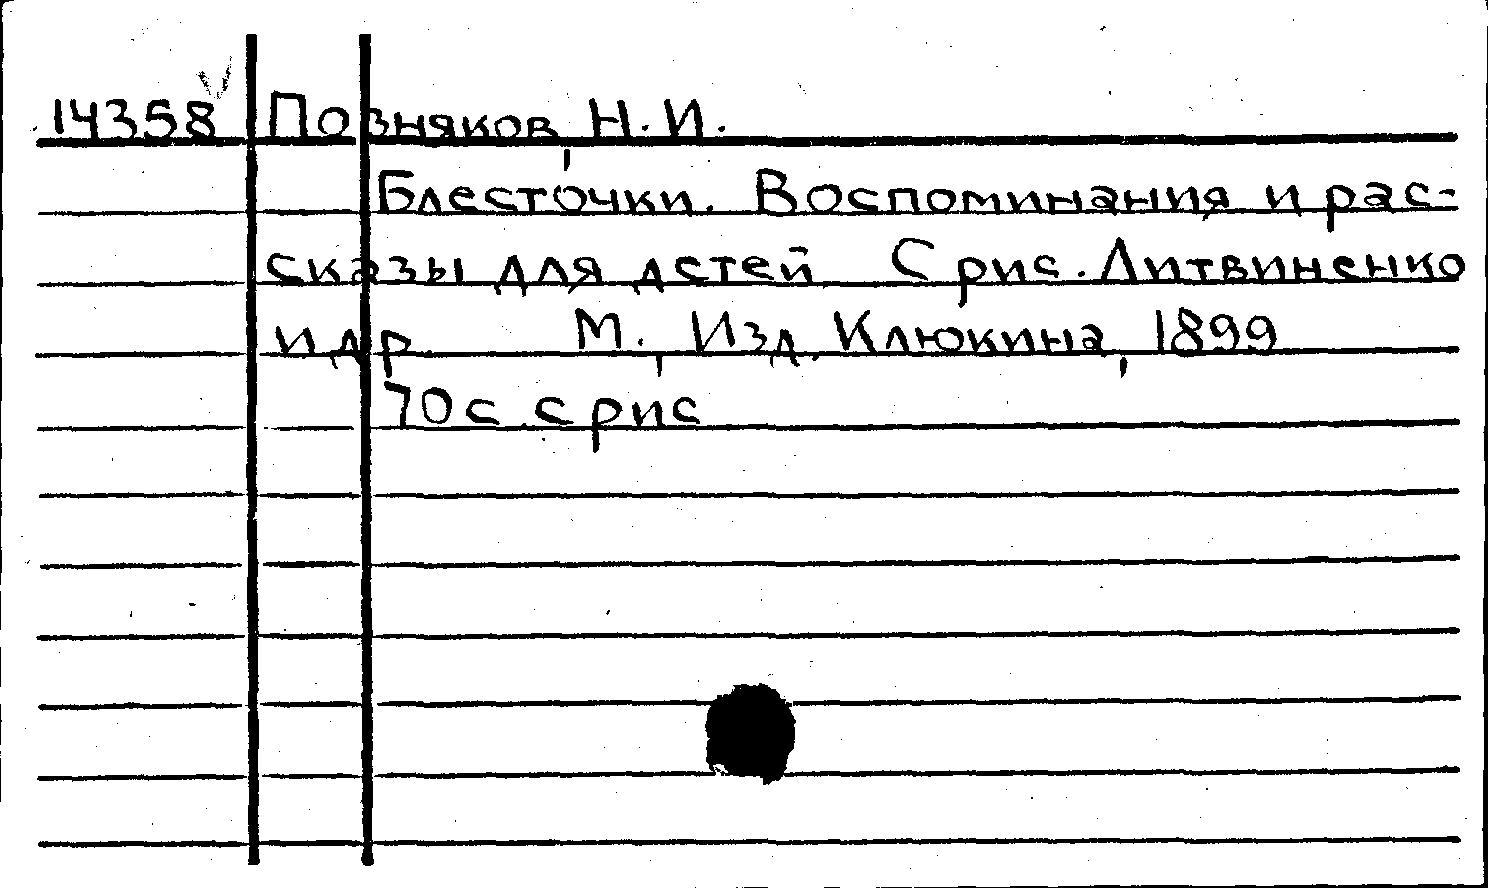 14358 Позняков, Н. И.
Блесточки. Воспоминания и рас-
сказы для детей С рис. Литвиненко
и др М., Изд. Клюкина, 1899
70 с. с рис